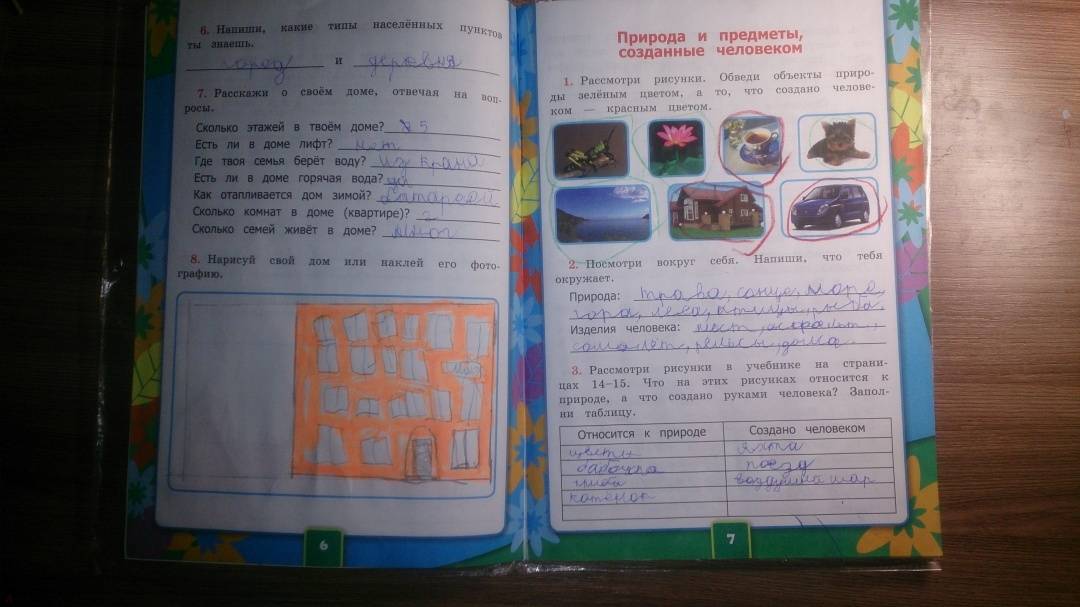 6. Напиши, какие типы населённых пунктов
ты знаешь.
город и деревня
7. Расскажи о своём доме, отвечая на воп-
росы.
Сколько этажей в твоём доме? 5
Есть ли в доме лифт? нет
Где твоя семья берёт воду? из крана
Есть ли в доме горячая вода? да
Как отапливается дом зимой?
Сколько комнат в доме (квартире)? 2
Сколько семей живёт в доме? мног
8. Нарисуй свой дом или наклей его фото-
графию.
6
Природа и предметы,
созданные человеком
1. Рассмотри рисунки. Обведи объекты приро-
ды зелёным цветом, а то, что создано челове-
ком — красным цветом.
2. Посмотри вокруг себя. Напиши, что тебя
окружает.
Природа: трава, сонце, море,
гора, леса, птицы, рыба,
Изделия человека: мост,
самалёт, рельсы, дома.
3. Рассмотри рисунки в учебнике на страни-
цах 14–15. Что на этих рисунках относится к
природе, а что создано руками человека? Запол-
ни таблицу.
Относится к природе Создано человеком
цветы яхта
бабочка поезд
грибы шар
котёнок
7